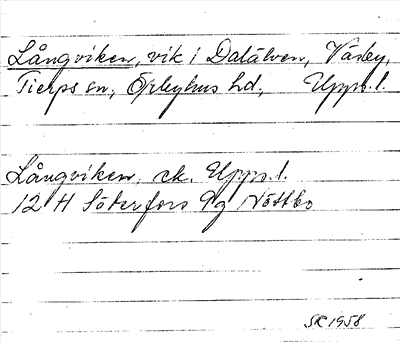 Långviken, vik i Dalälven, Väsby,
Tierps sn, Örbyhus hd, Upps. l.
Långviken, ek. Upps. l.
12 H Söderfors 9g Nöttbo
SK 1958